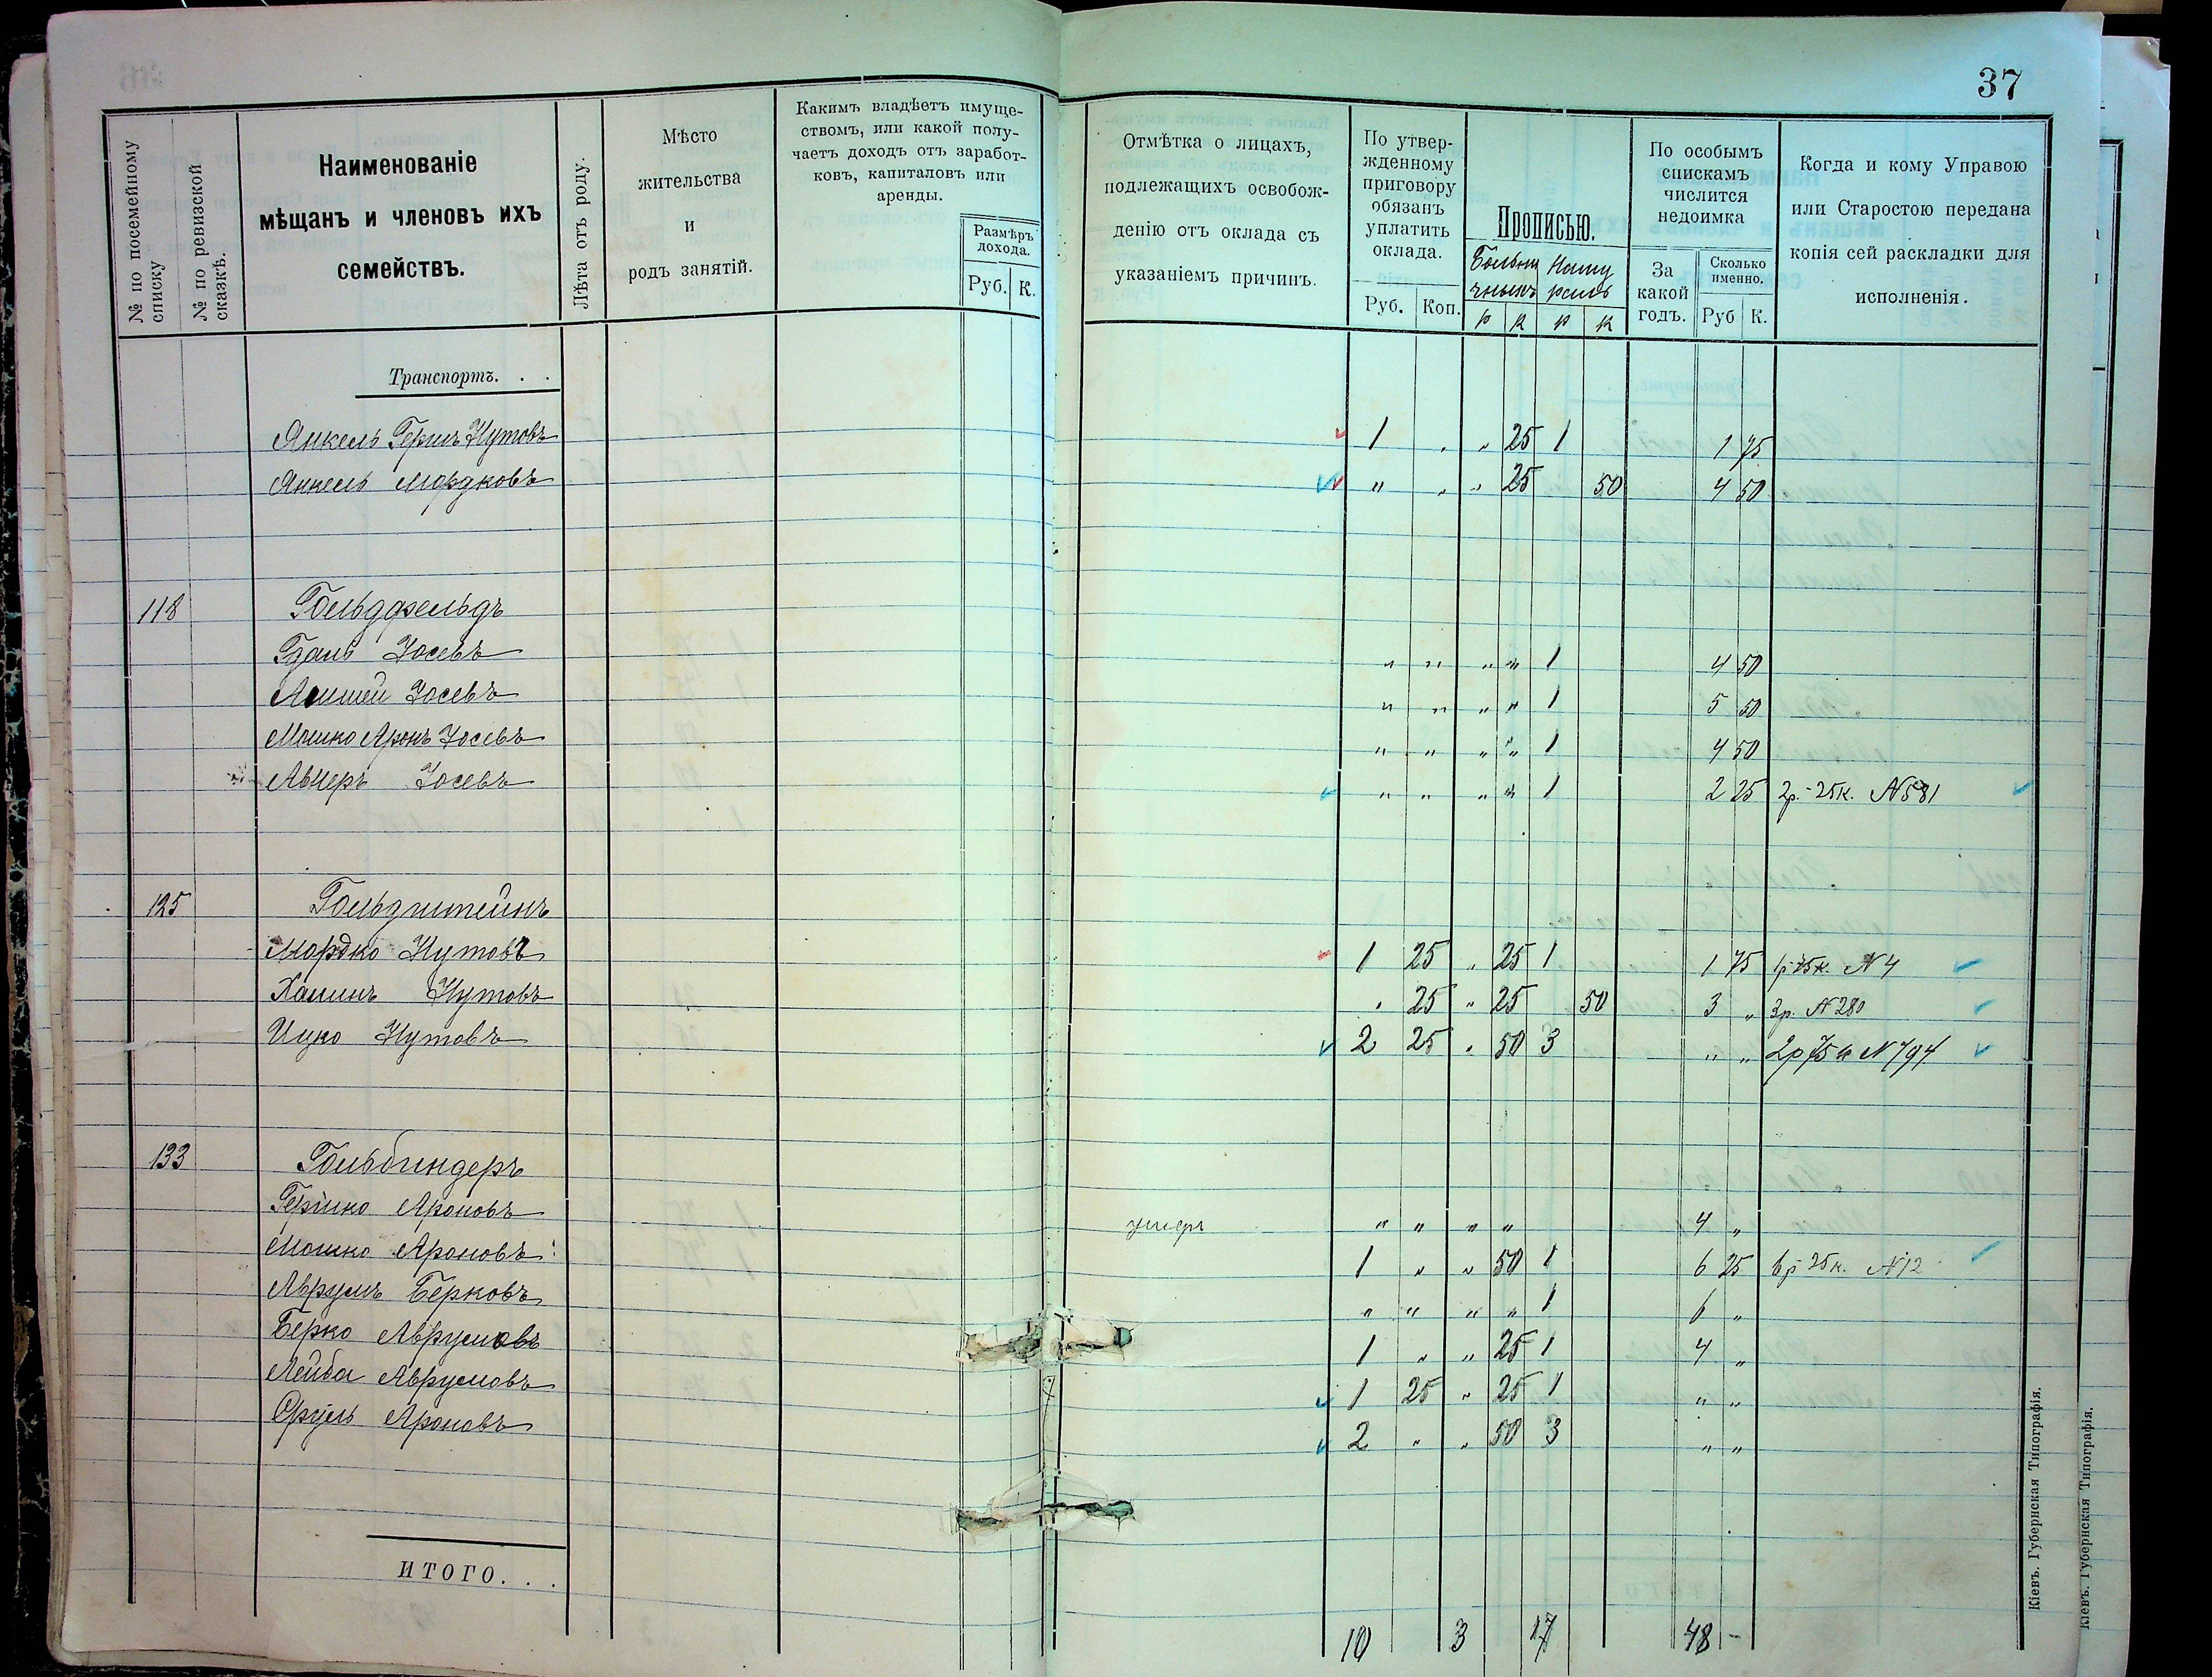 37
№ по посемейному списку
№ по ревизской сказкѣ.
Наименованіе
мѣщанъ и членовъ ихъ
семействъ.
Лѣта отъ роду.
Мѣсто
жительства
и
родъ занятій.
Какимъ владѣетъ имуще-
ствомъ, или какой полу-
чаетъ доходъ отъ заработ-
ковъ, капиталовъ или
аренды.
Размѣръ
дохода.
Руб. К.
Отмѣтка о лицахъ,
подлежащихъ освобож-
денію отъ оклада съ
указаніемъ причинъ.
По утвер-
жденному
приговору
обязанъ
уплатить
оклада.
Руб. Коп.
Прописью.
р к р к
По особымъ
спискамъ
числится
недоимка
За
какой
годъ.
Сколько
именно.
Руб К.
Когда и кому Управою
или Старостою передана
копія сей раскладки для
исполненія.
Транспортъ. . .
Янкель Гершъ Нутовъ 1 „ „ 25 1 1 75
Янкель Мордковъ „ „ „ 25 50 4 50
118 Гольдфельдъ
Гдаль Іосевъ „ „ „ „ 1 4 50
Іосевъ „ „ „ „ 1 5 50
Мошко Аронъ Іосевъ „ „ „ „ 1 4 50
Авнеръ Іосевъ „ „ „ „ 1 2 25 2р.-25к. №581
125 Гольдштейнъ
Мордко Нутовъ 1 25 „ 25 1 1 75 1р 75к. №4
Хаимъ Нутовъ „ 25 „ 25 50 3 „ 3р. №280
Ицко Нутовъ 2 25 „ 50 3 „ „ 2р 75к №794
133 Гольбиндеръ
Гершко Ароновъ умеръ „ „ „ „ 4 „
Мошко Ароновъ 1 „ „ 50 1 6 25 6р 25к. №12
Аврумъ Берковъ „ „ „ „ 1 6 „
Берко Аврумовъ 1 „ „ 25 1 4 „
Лейба Аврумовъ 1 25 „ 25 1 „ „
Сруль Ароновъ 2 „ „ 50 3 „ „
ИТОГО. . .
10 3 17 48 -
Кіевъ. Губернская Типографія.
Кіевъ. Губернская Типографія.